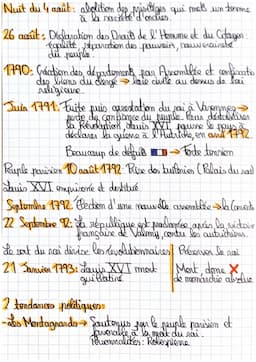 Nuit du 4 août : abolition des privilèges qui mets un terme
à la société d'ordres.
26 août : Déclaration des Droits de l'Homme et du Citoyen :
égalité, séparation des pouvoirs, souveraineté
du peuple.
1790 : Création des départements par Assemblée et confiscation
des biens du clergé → loie civile au dessus de loi
religieuse.
Juin 1791 : Fuite puis arrestation du roi à Varennes →
perte de confiance du peuple. Pour déstabiliser
la Révolution, Louis XVI pousse le pays à
déclarer la guerre à l'Autriche, en avril 1792
Beaucoup de défaites → Forte tension
Peuple parisien 10 août 1792 : Prise des tuileries (Palais du roi)
Louis XVI emprisonné et destitué
Septembre 1792 : Election d'une nouvelle assemblée → la Convention
22 Septembre 92 : La république est proclamée après la victoire
française de Valmy, contre les autrichiens.
Le sort du roi divise les révolutionnaires
Préserver le roi
21 Janvier 1793 : Louis XVI meurt
guillotiné.
Mort, donc ❌
de monarchie absolue
2 tendances politiques :
- Les Montagnards → Soutenus par le peuple parisien et
favorable à la mort du roi.
Personnalités : Robespierre.